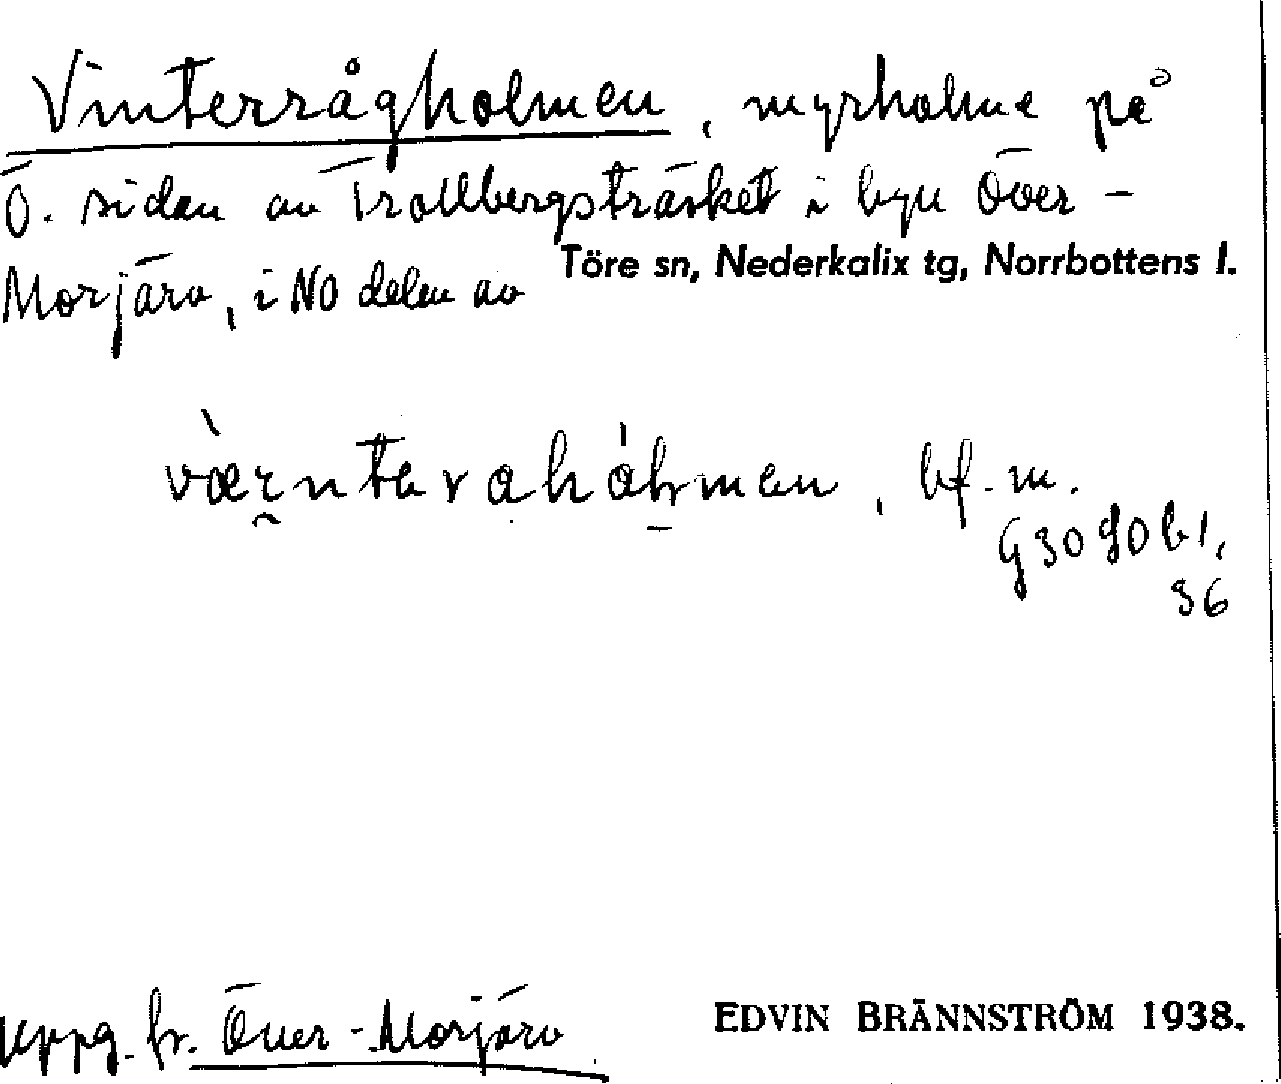 Vinterrågholmen, myrholme på
Ö. sidan av Trollbergsträsket i byn Över-
Morjärv, i NO delen av Töre sn, Nederkalix tg, Norrbottens l.
bf. m.
G3090b1,
36
uppg. fr. Över-Morjärv
EDVIN BRÄNNSTRÖM 1938.